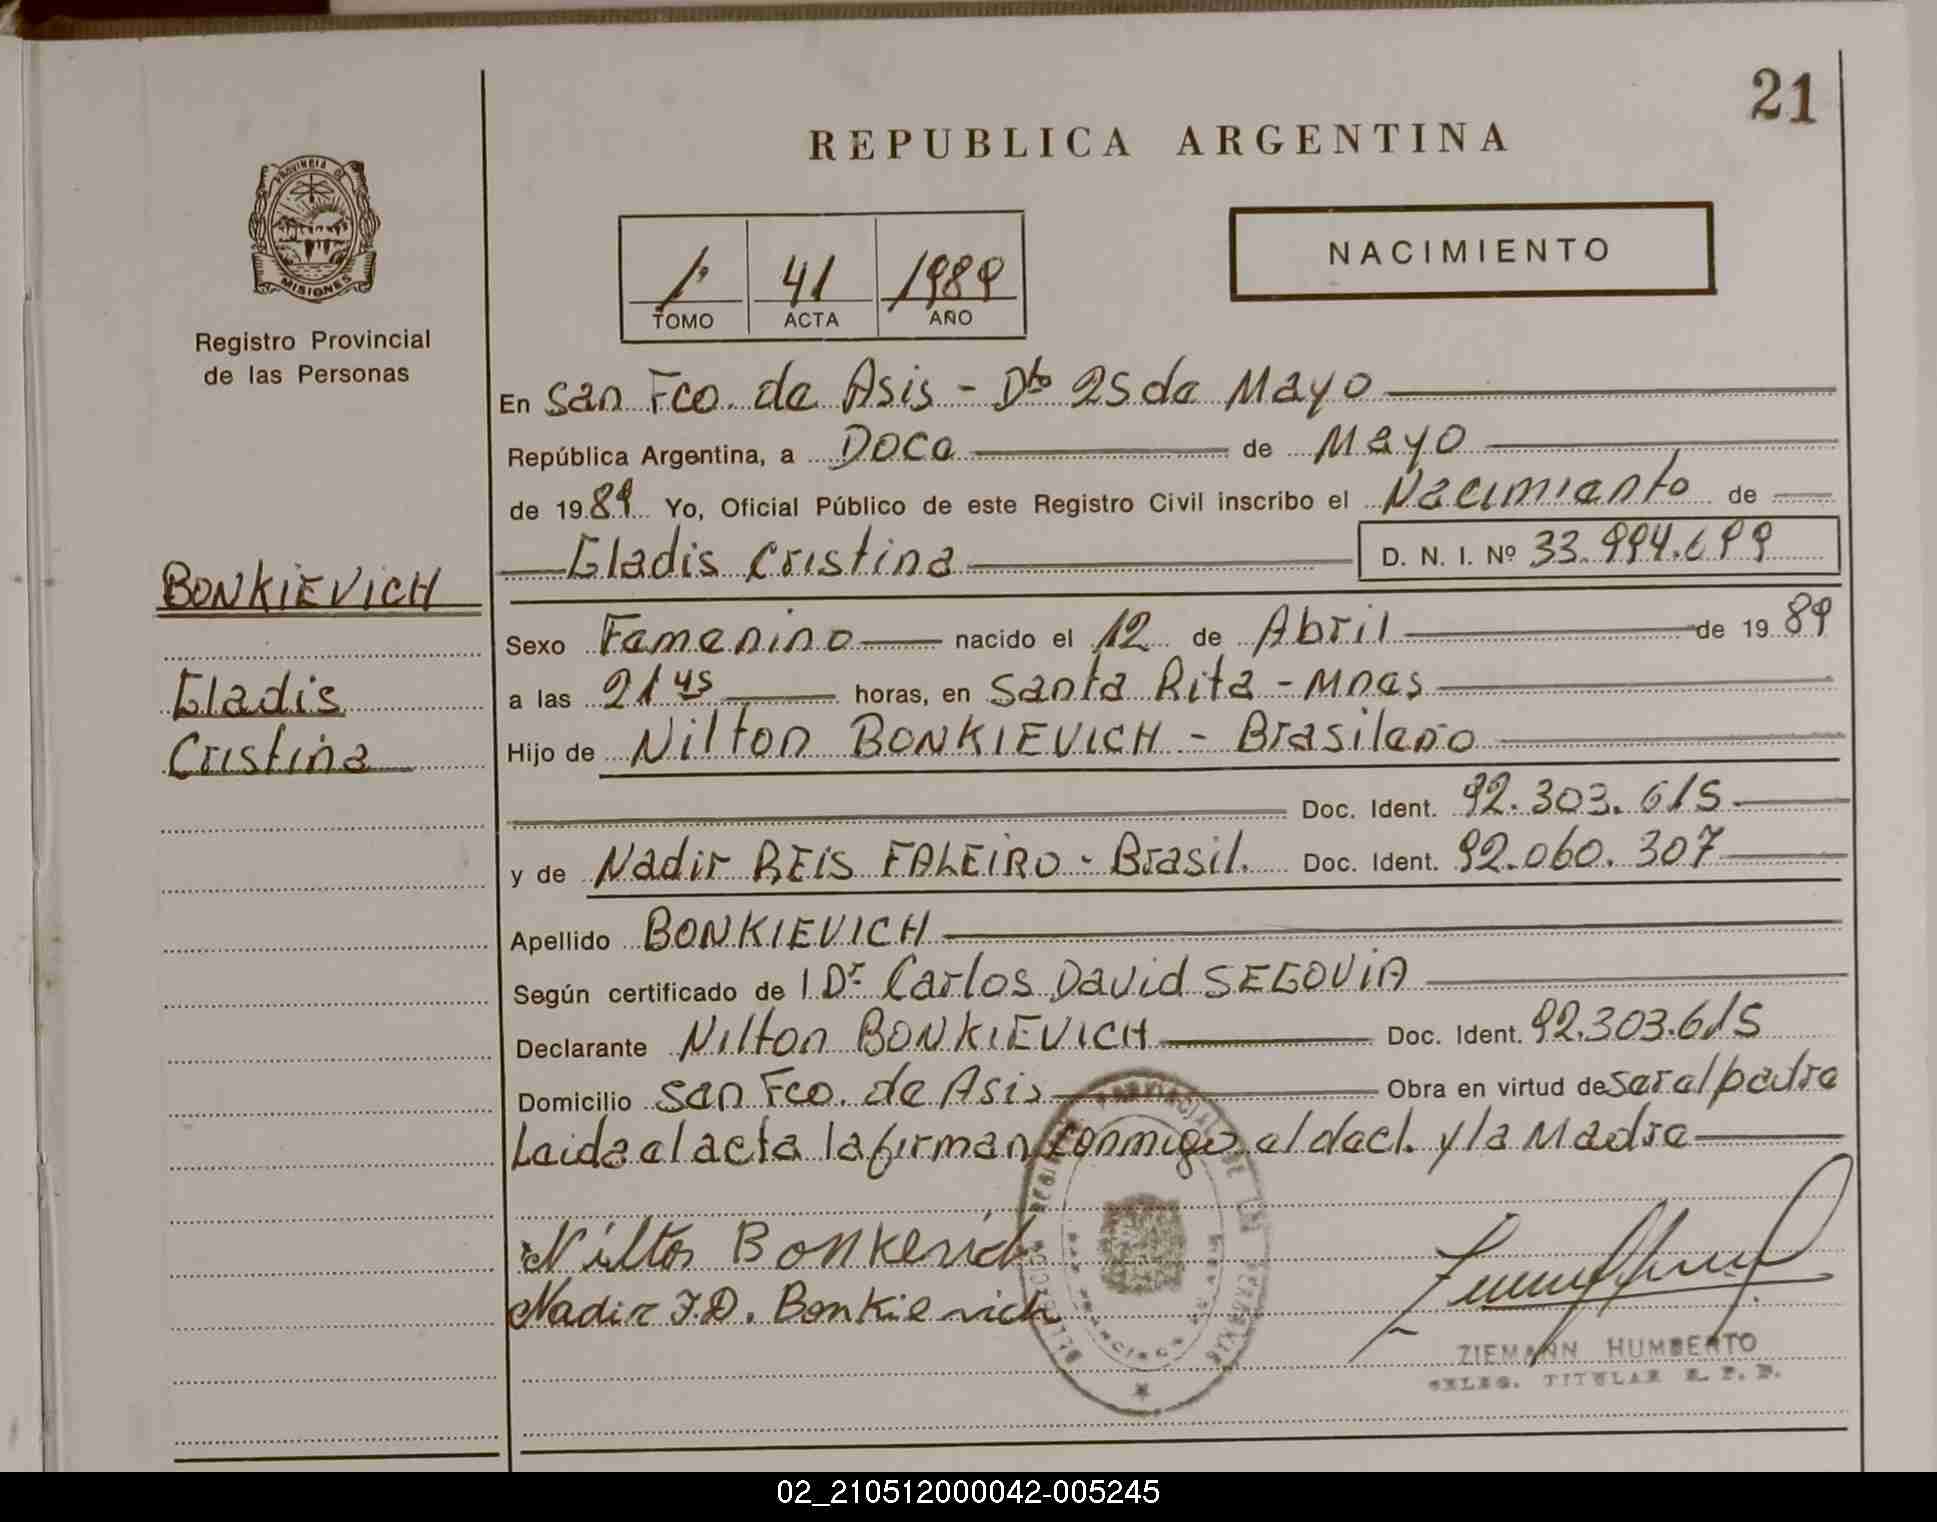 21
REPUBLICA ARGENTINA
PROVINCIA DE
MISIONES
Registro Provincial
de las Personas
1º 41 1989
TOMO ACTA AÑO
NACIMIENTO
En San Fco. de Asis - Dto 25 de Mayo
República Argentina, a Doce de Mayo
de 1989 Yo, Oficial Público de este Registro Civil inscribo el Nacimiento de
Gladis Cristina D. N. I. Nº 33.994.699
BONKIEVICH
Gladis
Cristina
Sexo Femenino nacido el 12 de Abril de 1989
a las 21 45 horas, en Santa Rita - Mnes
Hijo de Nilton BONKIEVICH - Brasileño
Doc. Ident. 92.303.615
y de Nadir REIS FALEIRO - Brasil. Doc. Ident. 92.060.307
Apellido BONKIEVICH
Según certificado de l Dr. Carlos David SEGOVIA
Declarante Nilton BONKIEVICH Doc. Ident. 92.303.615
Domicilio San Fco. de Asis Obra en virtud de ser el padre
Leida el acta la firman conmigo el decl. y la Madre
Nilton Bonkievich
Nadir F.D. Bonkievich
ZIEMANN HUMBERTO
DELEG. TITULAR R. P. P.
02_210512000042-005245